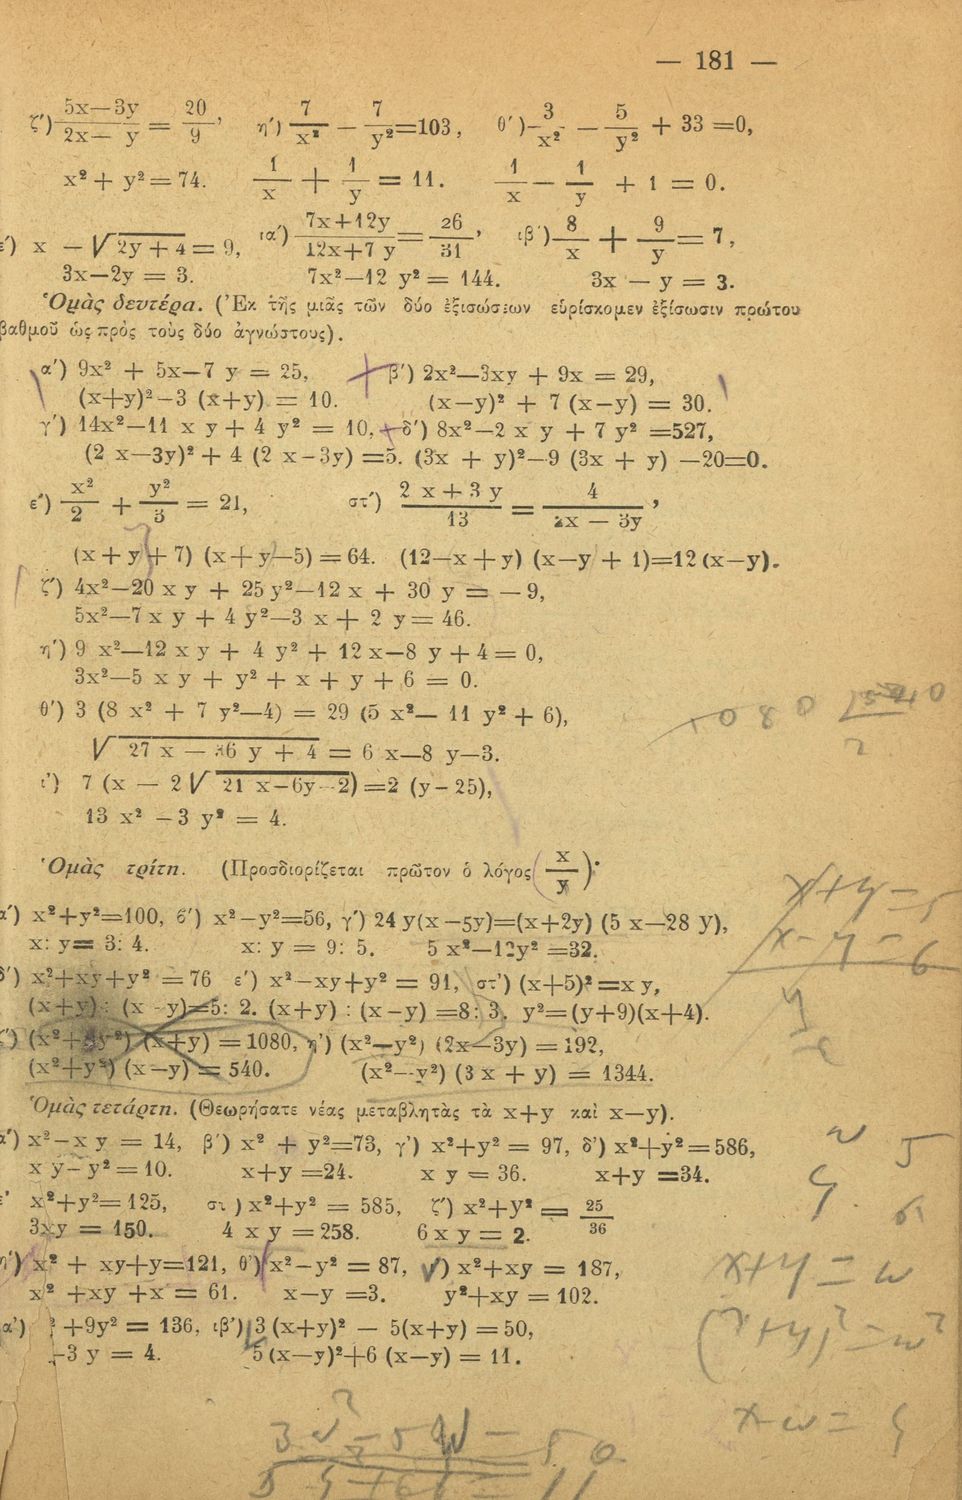 — 181 —
ζ′) (5x—3y)/(2x— y) = 20/9, η′) 7/x² — 7/y² =103, θ′) 3/x² — 5/y² + 33 =0,
x² + y² = 74. 1/x + 1/y = 11. 1/x — 1/y + 1 = 0.
x — √(2y + 4) = 9, ια′) (7x+12y)/(12x+7 y) = 26/31, ιβ′) 8/x + 9/y = 7,
3x—2y = 3. 7x²—12 y² = 144. 3x — y = 3.
Ὁμὰς δευτέρα. (Ἐκ τῆς μιᾶς τῶν δύο ἐξισώσεων εὑρίσκομεν ἐξίσωσιν πρώτου
βαθμοῦ ὡς πρὸς τοὺς δύο ἀγνώστους).
α′) 9x² + 5x—7 y = 25, β′) 2x²—3xy + 9x = 29,
(x+y)²—3 (x+y) = 10. (x—y)² + 7 (x—y) = 30.
γ′) 14x²—11 x y + 4 y² = 10, δ′) 8x²—2 x y + 7 y² =527,
(2 x—3y)² + 4 (2 x—3y) =5. (3x + y)²—9 (3x + y) —20=0.
ε′) x²/2 + y²/3 = 21, στ′) (2 x + 3 y)/13 = 4/(2x — 3y),
(x + y + 7) (x + y—5) = 64. (12—x + y) (x—y + 1)=12 (x—y).
ζ′) 4x²—20 x y + 25 y²—12 x + 30 y = — 9,
5x²—7 x y + 4 y²—3 x + 2 y = 46.
η′) 9 x²—12 x y + 4 y² + 12 x—8 y + 4 = 0,
3x²—5 x y + y² + x + y + 6 = 0.
θ′) 3 (8 x² + 7 y²—4) = 29 (5 x²— 11 y² + 6),
√(27 x — 36 y + 4) = 6 x—8 y—3.
ι′) 7 (x — 2 √(21 x—6y—2)) =2 (y—25),
13 x² —3 y² = 4.
Ὁμὰς τρίτη. (Προσδιορίζεται πρῶτον ὁ λόγος (x/y).
α′) x²+y²=100, β′) x²—y²=56, γ′) 24 y(x—5y)=(x+2y) (5 x—28 y),
x: y= 3: 4. x: y = 9: 5. 5 x²—12y² =32.
δ′) x²+xy+y² = 76 ε′) x²—xy+y² = 91, στ′) (x+5)² =x y,
(x+y): (x—y)=5: 2. (x+y) : (x—y) =8: 3. y²= (y+9)(x+4).
ζ′) (x²+ y²) (x+y) = 1080, η′) (x²—y²) (2x—3y) = 192,
(x²+y²) (x—y) = 540. (x²—y²) (3 x + y) = 1344.
Ὁμὰς τετάρτη. (Θεωρήσατε νέας μεταβλητὰς τὰ x+y καὶ x—y).
α′) x²—x y = 14, β′) x² + y²=73, γ′) x²+y² = 97, δ′) x²+y² = 586,
x y— y² = 10. x+y =24. x y = 36. x+y =34.
ε′ x²+y²= 125, στ ) x²+y² = 585, ζ′) x²+y² = 25/36
3xy = 150. 4 x y = 258. 6 x y = 2.
η′) x² + xy+y=121, θ′) x²—y² = 87, ι′) x²+xy = 187,
x² +xy +x = 61. x—y =3. y²+xy = 102.
α′) ² +9y² = 136, ιβ′) 3 (x+y)² — 5(x+y) = 50,
—3 y = 4. 5 (x—y)²+6 (x—y) = 11.
x+y = 5
x-y = 6
x+y = ω
(x+y)² = ω²